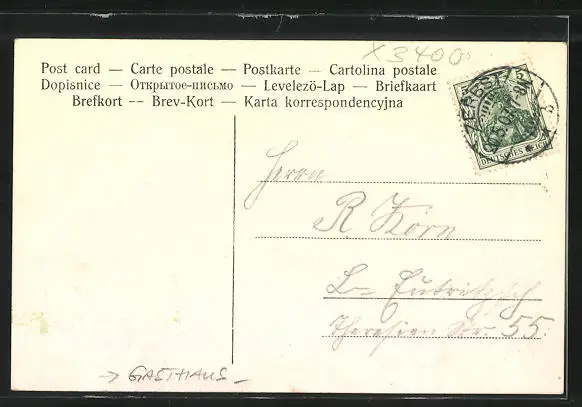 X3400
Post card — Carte postale — Postkarte — Cartolina postale
Dopisnice — Открытое-письмо — Levelezö-Lap — Briefkaart
Brefkort -- Brev-Kort — Karta korrespondencyjna
ZERBST
DEUTSCHES REICH
Herrn
R Körn
L- Eutritzsch
Theresien Str. 55.
→ GASTHAUS -